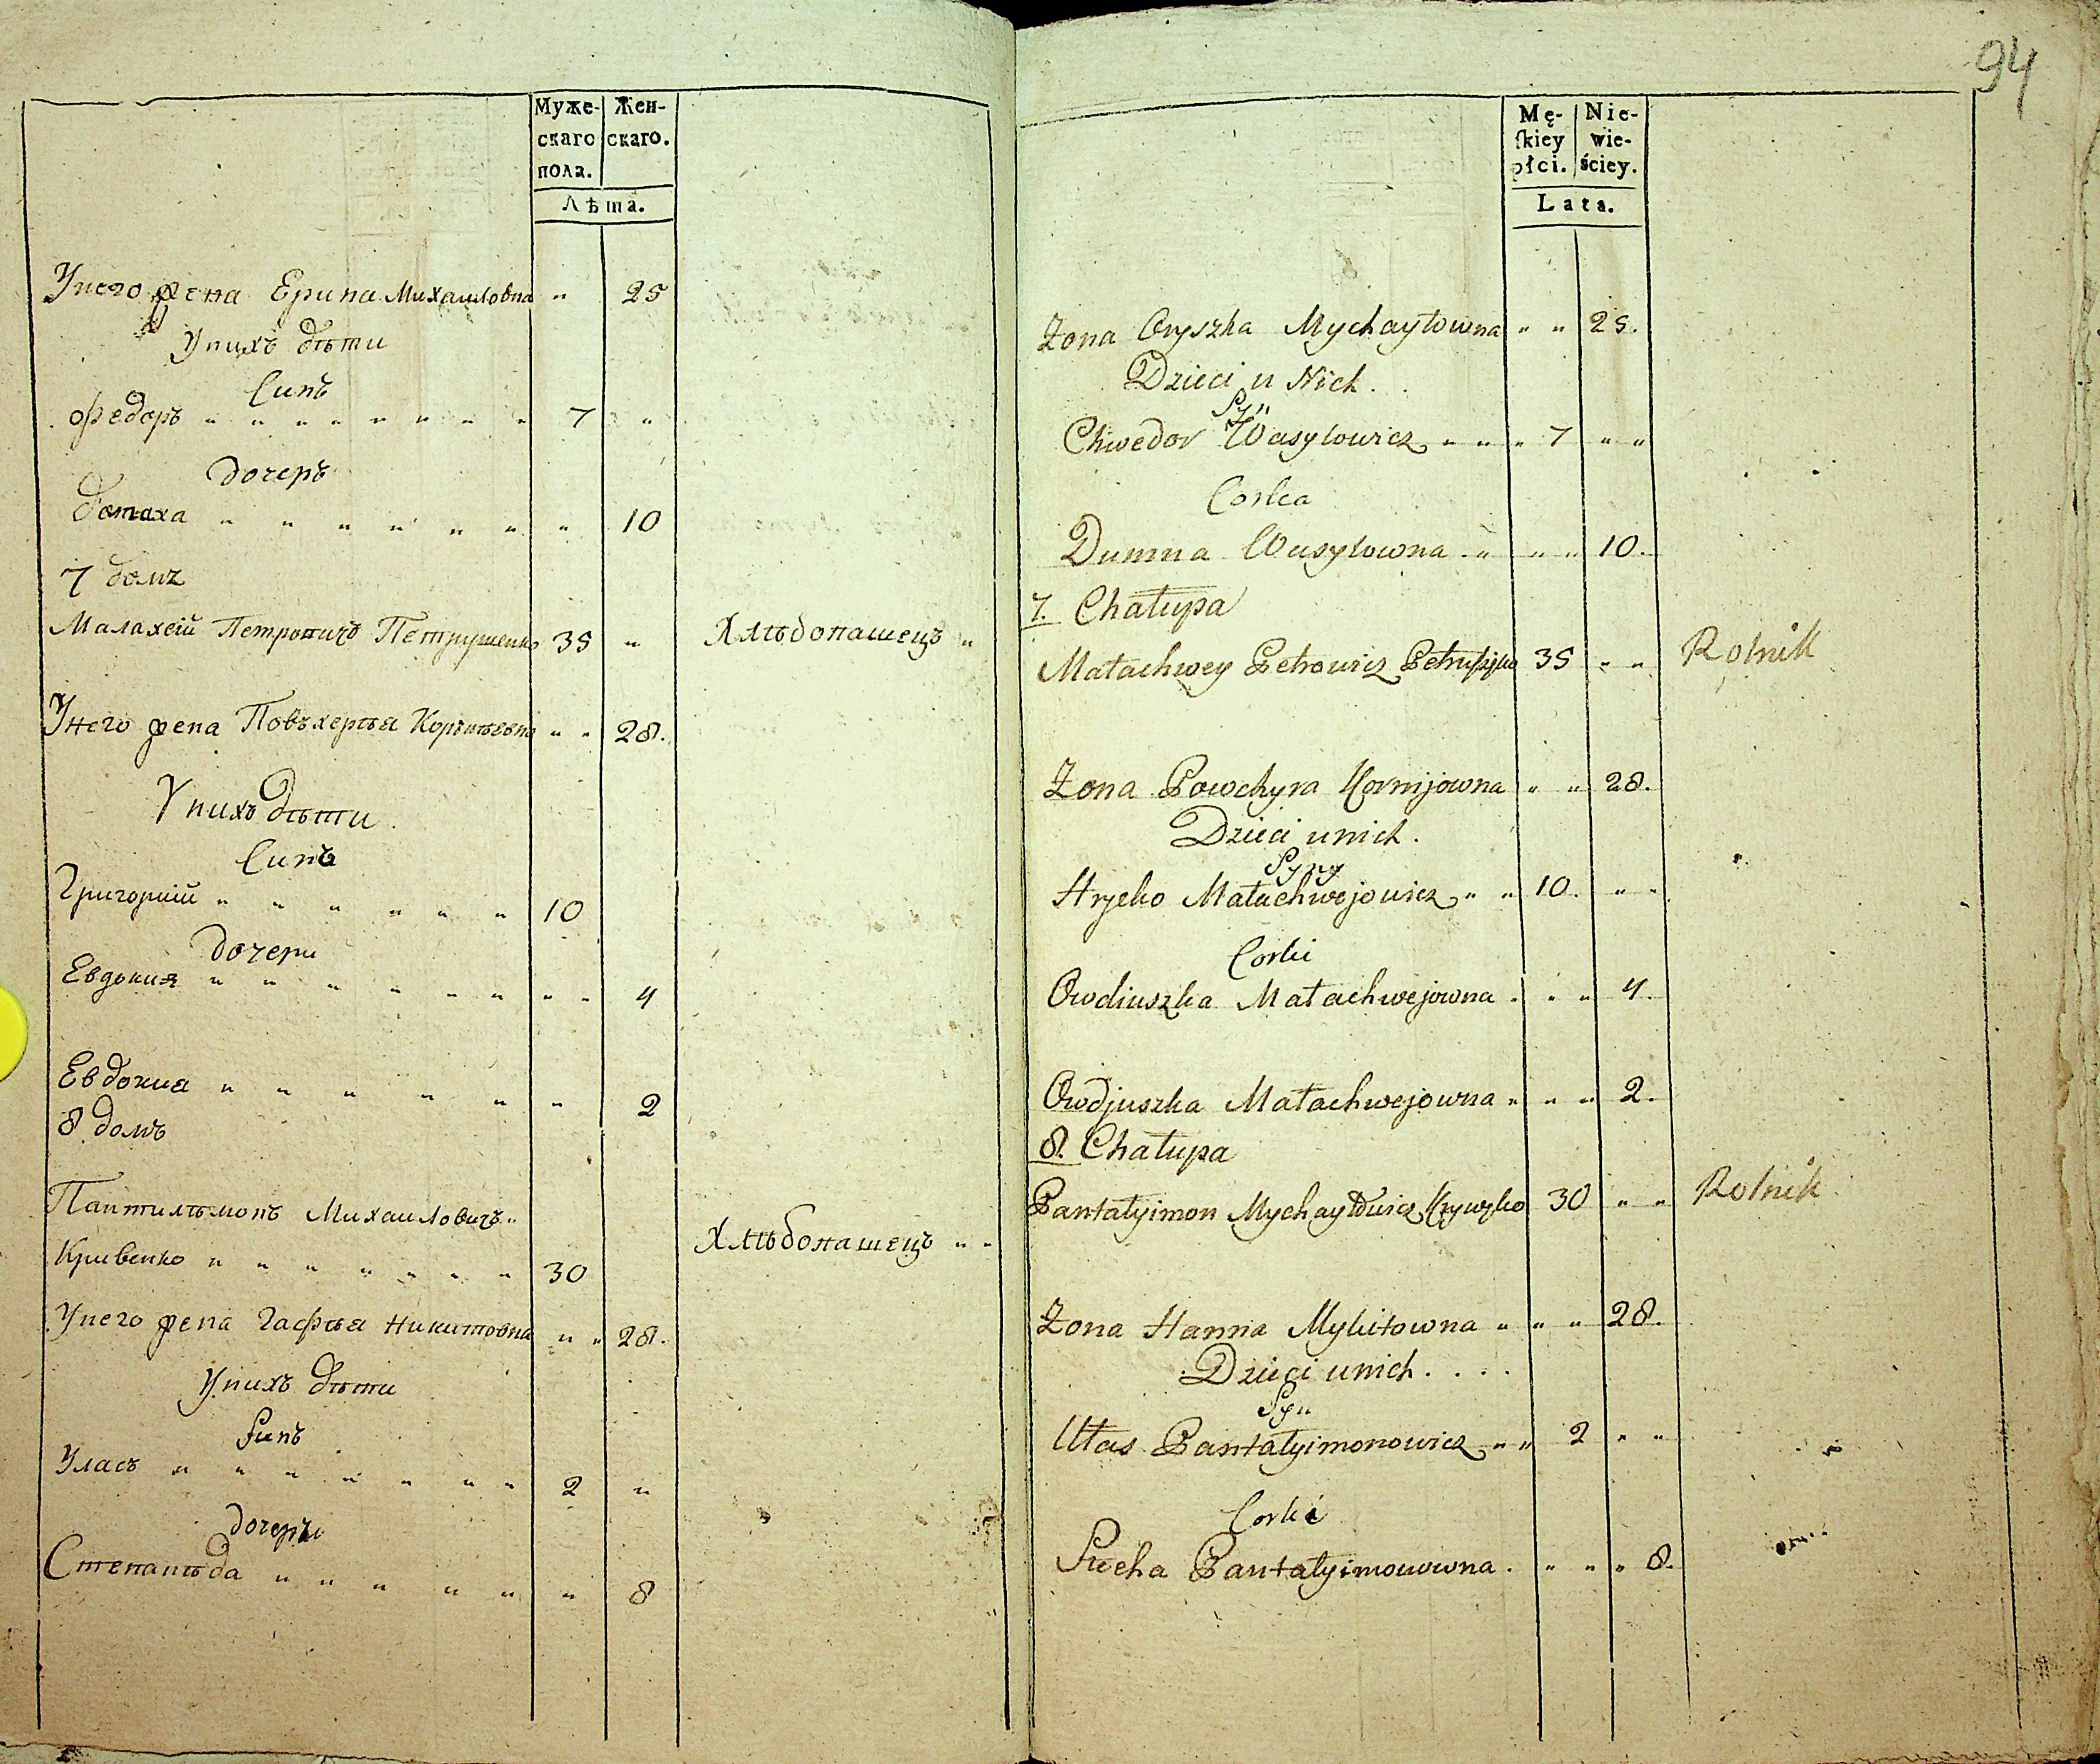 94
Муже- Жен-
скаго скаго.
пола.
Лѣта.
Унего жена Ерина Михаиловна " 25
Унихъ дѣти
Синъ
Федоръ " " " " " " " 7 "
дочеръ
" " " " " " " 10
7 домъ
Малахей Петровичъ Петрушенко 35 " Хлѣбопашецъ "
Унего жена Повъхерѣа " " 28.
Унихъ дѣти
Синъ
Григорий " " " " " " 10
дочери
Евдокия " " " " " " " " 4
Евдокиа " " " " " " 2
8 домъ
Пантилѣмонъ Михаиловичъ "
Кривенко " " " " " " " 30 Хлѣбопашецъ " "
Унего жена Гафѣа Никитовна " " 28.
Унихъ дѣти
Синъ
Уласъ " " " " " " " 2 "
дочеръ
Степанѣда " " " " " " 8
Mę- Nie-
skiey wie-
płci. ściey.
Lata.
Żona Oryszka Mychayłowna " " 25.
Dzieci u Nich.
Syn
Chwedor Wasylowicz " " " 7 " "
Corka
Dumna Wasylowna " " " 10.
7. Chałupa
Małachwey Petrowicz 35 " " Rolnik
Żona Powchyra Kornijowna " " 28.
Dzieci unich.
Syny
Hryćko Małachwejowicz " " 10. " "
Corki
Owdiuszka Małachwejowna . " " 4.
Owdjuszka Małachwejowna " " " 2.
8. Chałupa
Pantałyimon Mychayłowicz Krywęko 30 " " Rolnik
Żona Hanna Mykitowna " " " 28.
Dzieci unich. . . .
Syn
Ułas Pantałyimonowicz " " 2 " "
Corki
Pantałyimonowna . " " " 8.